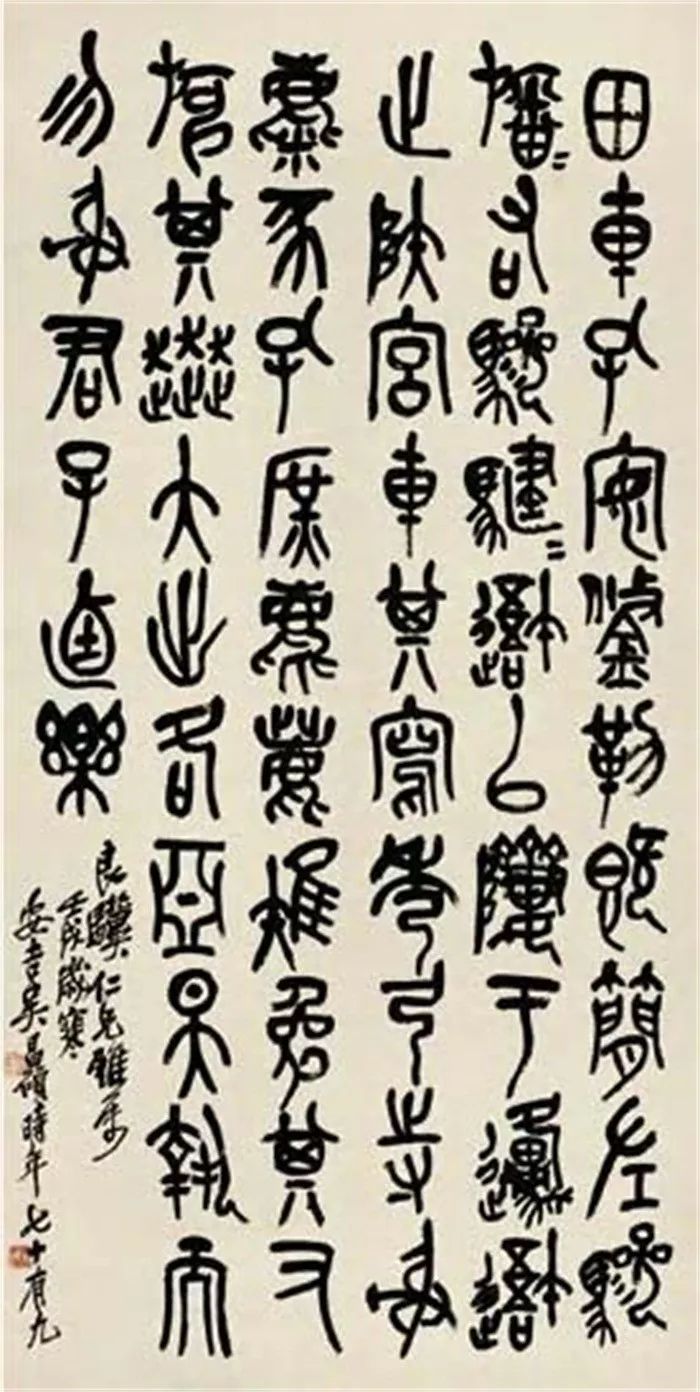 田車孔安鋚勒既簡左驂
旛=右驂騝=避以隮于邍避
止陜宮車其寫秀弓寺射
麋豕孔庶麀鹿雉兔其又
其奔大出各亞昊執而
勿射君子卣樂
良驥仁兄雅屬
壬戌歲寒
安吉吳昌碩時年七十有九